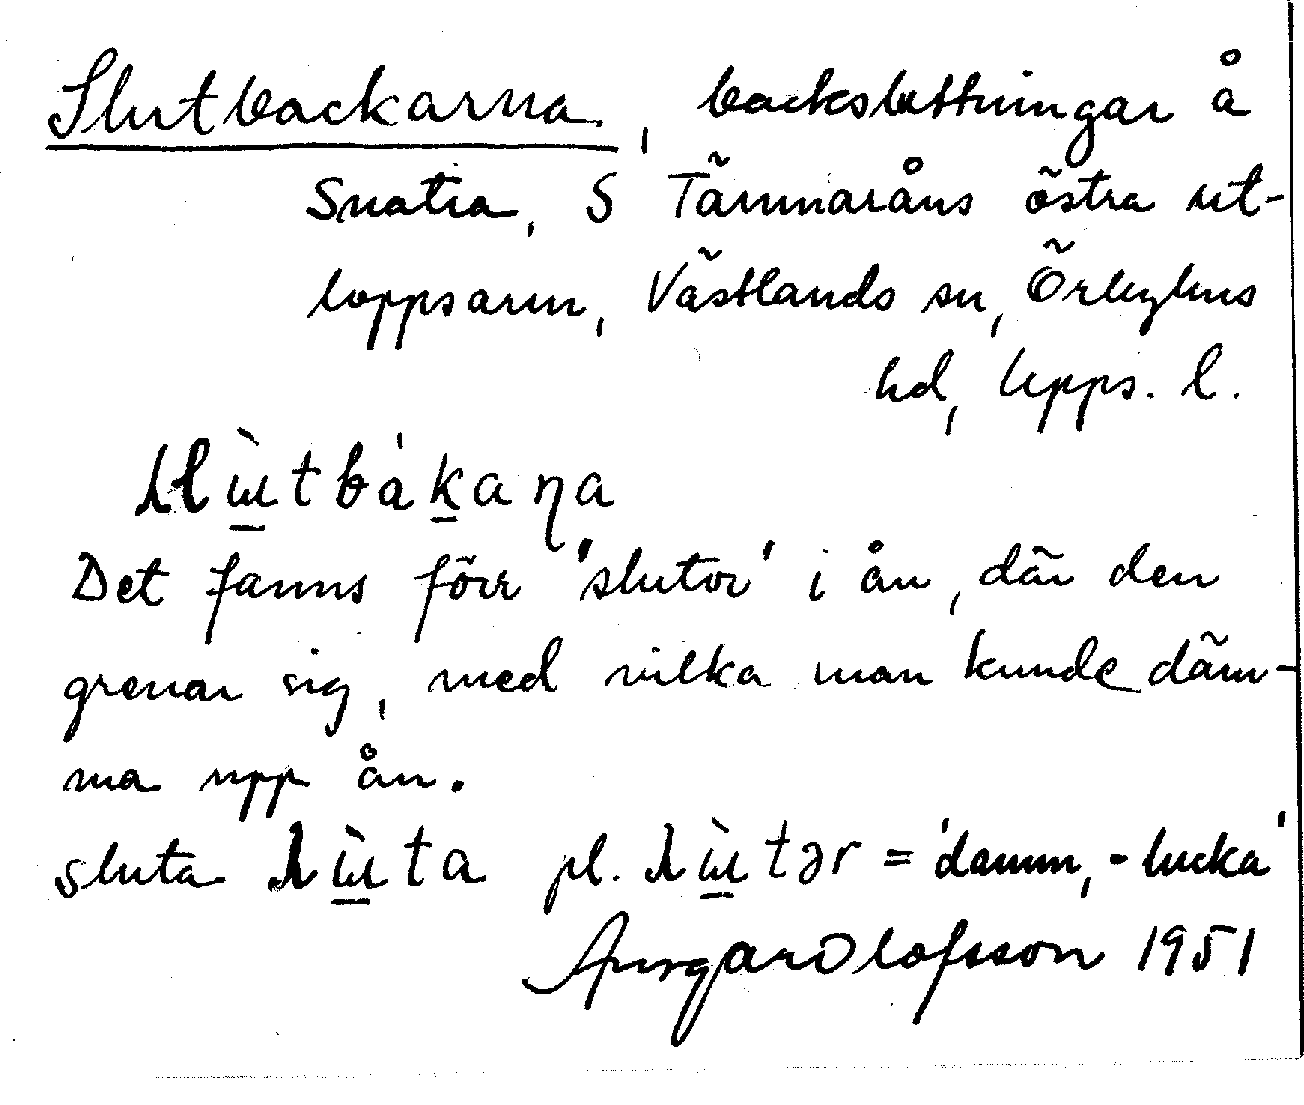 Slutbackarna, backsluttningar å
Snatra, S Tämnaråns östra ut-
loppsarm, Västlands sn, Örbyhus
hd, Upps. l.
Det fanns förr 'slutor' i ån, där den
grenar sig, med vilka man kunde däm-
ma upp ån.
sluta pl. = 'damm, -lucka'
Ansgar Olofsson 1951